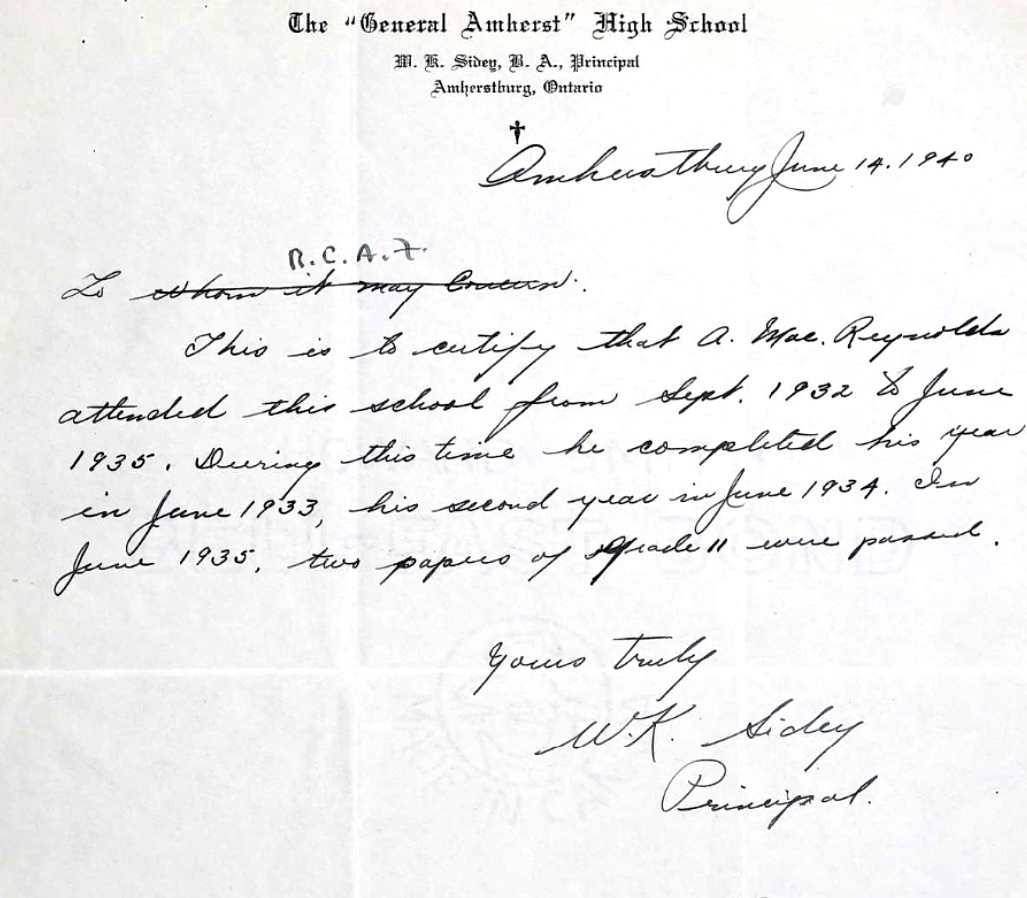 The "General Amherst" High School
W. K. Sidey, B. A., Principal
Amherstburg, Ontario
Amherstburg June 14. 1940
R.C.A.F.
To whom it may Concern.
This is to certify that A. Mac. Reynolds
attended this school from Sept. 1932 to June
1935. During this time he completed his year
in June 1933, his second year in June 1934. In
June 1935, two papers of Grade 11 were passed.
Yours truly
W.K. Sidey
Principal.